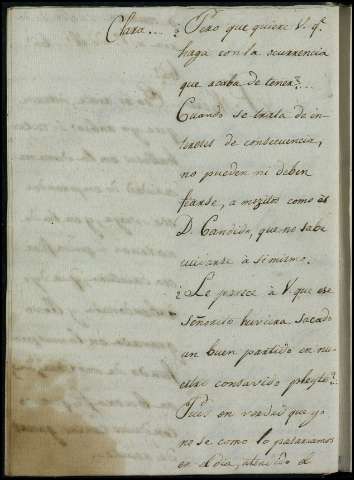 Clara... ¿Pero que quiere V. qe.
haga con la ocurrencia
que acaba de tener?...
Cuando se trata de in-
tereses de consecuencia,
no pueden ni deben
fiarse, a mozitos como es
D. Candido, que no sabe
cuidarse à sí mismo.
¿Le parece à V. que ese
señorito huviera sacado
un buen partido en nu-
estro consavido pleyto?...
Pues en verdad que yo
no se como lo pasariamos
en el dia, atenidos à